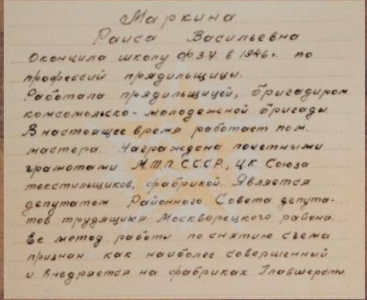 Маркина
Раиса Васильевна
Окончила школу ФЗУ. в 1946 г. по
профессий прядильщицы.
Работала прядильщицей, бригадиром
комсомольско-молодежной бригады.
В настоящее время работает пом.
мастера. Награждена почетными
грамотами МТП.СССР, ЦК Союза
текстильщиков, фабрикой. Является
депутатом Районного Совета депута-
тов трудящихся Москворецкого района.
Ее метод работы по снятию съема
признан как наиболее совершенный
и внедряется на фабриках Главшерсти.